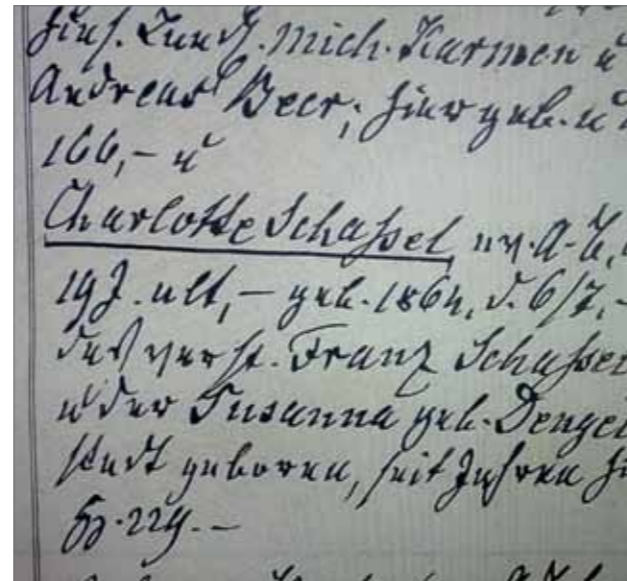 hies. Landm. Mich. Karmen u
Andreas Beer; hier geb. u
166,- u
Charlotte Schaßel ev. A-B,
19 J. alt,- geb. 1864, d. 6/7,-
des verst. Franz Schaßel
u der Susanna geb. Dengel
stadt geboren, seit Jahren hi
Hs. 229.-